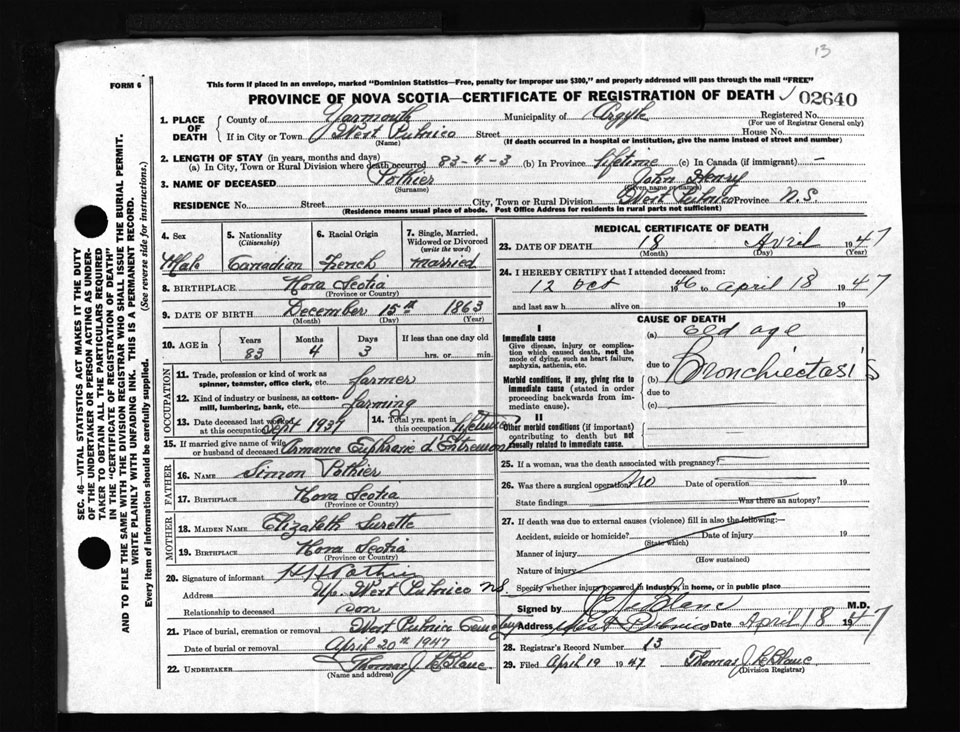 13
FORM 6
This form if placed in an envelope, marked "Dominion Statistics—Free, penalty for improper use $300," and properly addressed will pass through the mail "FREE"
PROVINCE OF NOVA SCOTIA—CERTIFICATE OF REGISTRATION OF DEATH
02640
1. PLACE OF DEATH County of Yarmouth Municipality of Argyle Registered No.
(For use of Registrar General only)
If in City or Town West Pubnico Street House No.
(Name) (If death occurred in a hospital or institution, give the name instead of street and number)
2. LENGTH OF STAY (in years, months and days)
(a) In City, Town or Rural Division where death occurred 83-4-3 (b) In Province lifetime (c) In Canada (if immigrant) —
3. NAME OF DECEASED Pothier John Henry
(Surname) (Given name or names)
RESIDENCE No. Street City, Town or Rural Division West Pubnico Province N.S.
(Residence means usual place of abode. Post Office Address for residents in rural parts not sufficient)
4. Sex 5. Nationality (Citizenship) 6. Racial Origin 7. Single, Married, Widowed or Divorced (write the word)
Male Canadian French married
8. BIRTHPLACE Nova Scotia
(Province or Country)
9. DATE OF BIRTH December 15th 1863
(Month) (Day) (Year)
10. AGE in Years Months Days If less than one day old
83 4 3 hrs. or min.
OCCUPATION
11. Trade, profession or kind of work as spinner, teamster, office clerk, etc. farmer
12. Kind of industry or business, as cotton-mill, lumbering, bank, etc. farming
13. Date deceased last worked at this occupation Sept 1937 14. Total yrs. spent in this occupation lifetime
15. If married give name of wife or husband of deceased Armance Euphrasie d'Entremont
FATHER
16. NAME Simon Pothier
17. BIRTHPLACE Nova Scotia
(Province or Country)
MOTHER
18. MAIDEN NAME Elizabeth Surette
19. BIRTHPLACE Nova Scotia
(Province or Country)
20. Signature of informant Pothier
Address West Pubnico N.S.
Relationship to deceased son
21. Place of burial, cremation or removal West Pubnico Cemetery
Date of burial or removal April 20th 1947
22. UNDERTAKER Thomas J. LeBlanc
(Name and address)
MEDICAL CERTIFICATE OF DEATH
23. DATE OF DEATH 18 Avril 1947
(Month) (Day) (Year)
24. I HEREBY CERTIFY that I attended deceased from:
12 Oct 1946 to April 18 1947
and last saw h alive on 19
CAUSE OF DEATH
I
Immediate cause (a) old age
Give disease, injury or complication which caused death, not the mode of dying, such as heart failure, asphyxia, asthenia, etc.
due to
Morbid conditions, if any, giving rise to immediate cause (stated in order proceeding backwards from immediate cause).
(b) Bronchiectasis
due to
(c)
II
Other morbid conditions (if important) contributing to death but not causally related to immediate cause.
25. If a woman, was the death associated with pregnancy?
26. Was there a surgical operation No Date of operation 19
State findings Was there an autopsy?
27. If death was due to external causes (violence) fill in also the following:—
Accident, suicide or homicide? Date of injury 19
(State which)
Manner of injury
(How sustained)
Nature of injury
Specify whether injury occurred in industry, in home, or in public place
Signed by LeBlanc M.D.
Address West Pubnico Date April 18 1947
28. Registrar's Record Number 13
29. Filed April 19 1947 Thomas J. LeBlanc
(Division Registrar)
SEC. 46—VITAL STATISTICS ACT MAKES IT THE DUTY
OF THE UNDERTAKER OR PERSON ACTING AS UNDERTAKER TO OBTAIN ALL THE PARTICULARS REQUIRED
IN THE "CERTIFICATE OF REGISTRATION OF DEATH"
AND TO FILE THE SAME WITH THE DIVISION REGISTRAR WHO SHALL ISSUE THE BURIAL PERMIT.
WRITE PLAINLY WITH UNFADING INK. THIS IS A PERMANENT RECORD.
Every item of information should be carefully supplied. (See reverse side for instructions.)